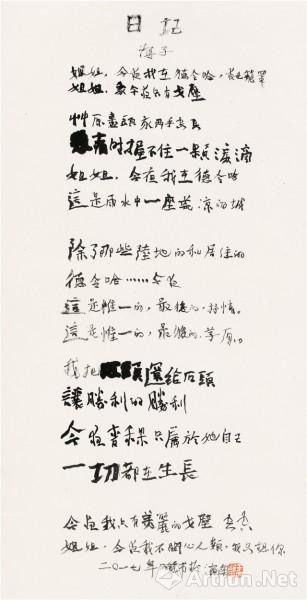 日記
海子
姐姐，今夜我在德令哈，夜色籠罩
姐姐，我今夜只有戈壁
草原盡頭我兩手空空
悲痛時握不住一顆淚滴
姐姐，今夜我在德令哈
這是雨水中一座荒涼的城
除了那些路過的和居住的
德令哈……今夜
這是惟一的，最後的，抒情。
這是惟一的，最後的，草原。
我把石頭還給石頭
讓勝利的勝利
今夜青稞只屬於她自己
一切都在生長
今夜我只有美麗的戈壁 空空
姐姐，今夜我不關心人類，我只想你
二〇一七年
Artron.Net